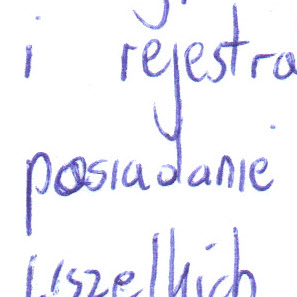 i rejestra
posiadanie
wszelkich